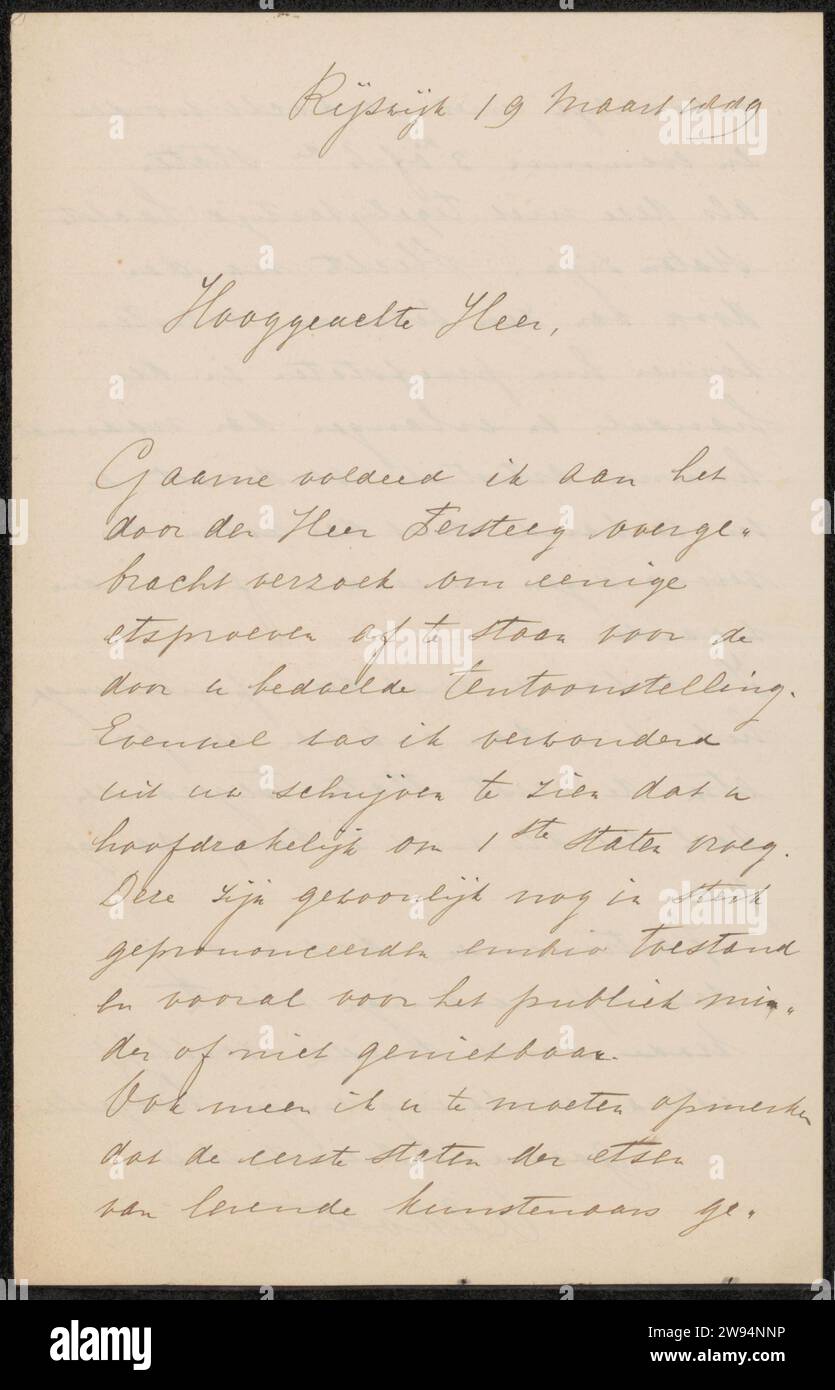 Rijswijk 19 Maart 1889
Hooggeachte Heer,
Gaarne voldeed ik aan het
door den Heer Tersteeg overge„
bracht verzoek om eenige
etsproeven af te staan voor de
door u bedoelde tentoonstelling.
Evenwel was ik verwonderd
uit uw schrijven te zien dat u
hoofdzakelijk om 1ste staten vroeg.
Deze zijn gewoonlijk nog in sterk
geprononceerden embrio toestand
en vooral voor het publiek min„
der of niet genietbaar.
Ook meen ik u te moeten opmerken
dat de eerste staten der etsen
van levende kunstenaars ge„
alamy
Image ID: 2W94NNP
www.alamy.com